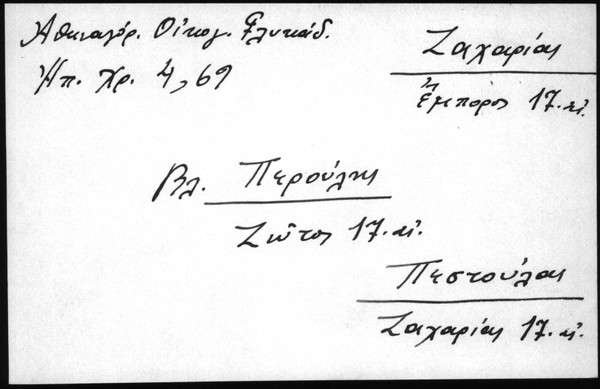 Ἀθηναγόρ. Οἰκογ. Γλυκάδ.
Ἠπ. Χρ. 4, 69
Ζαχαρίας
Ἔμπορος 17. αἰ.
Βλ. Περούλης
Ζῶτος 17. αἰ.
Πεστούλας
Ζαχαρίας 17. αἰ.